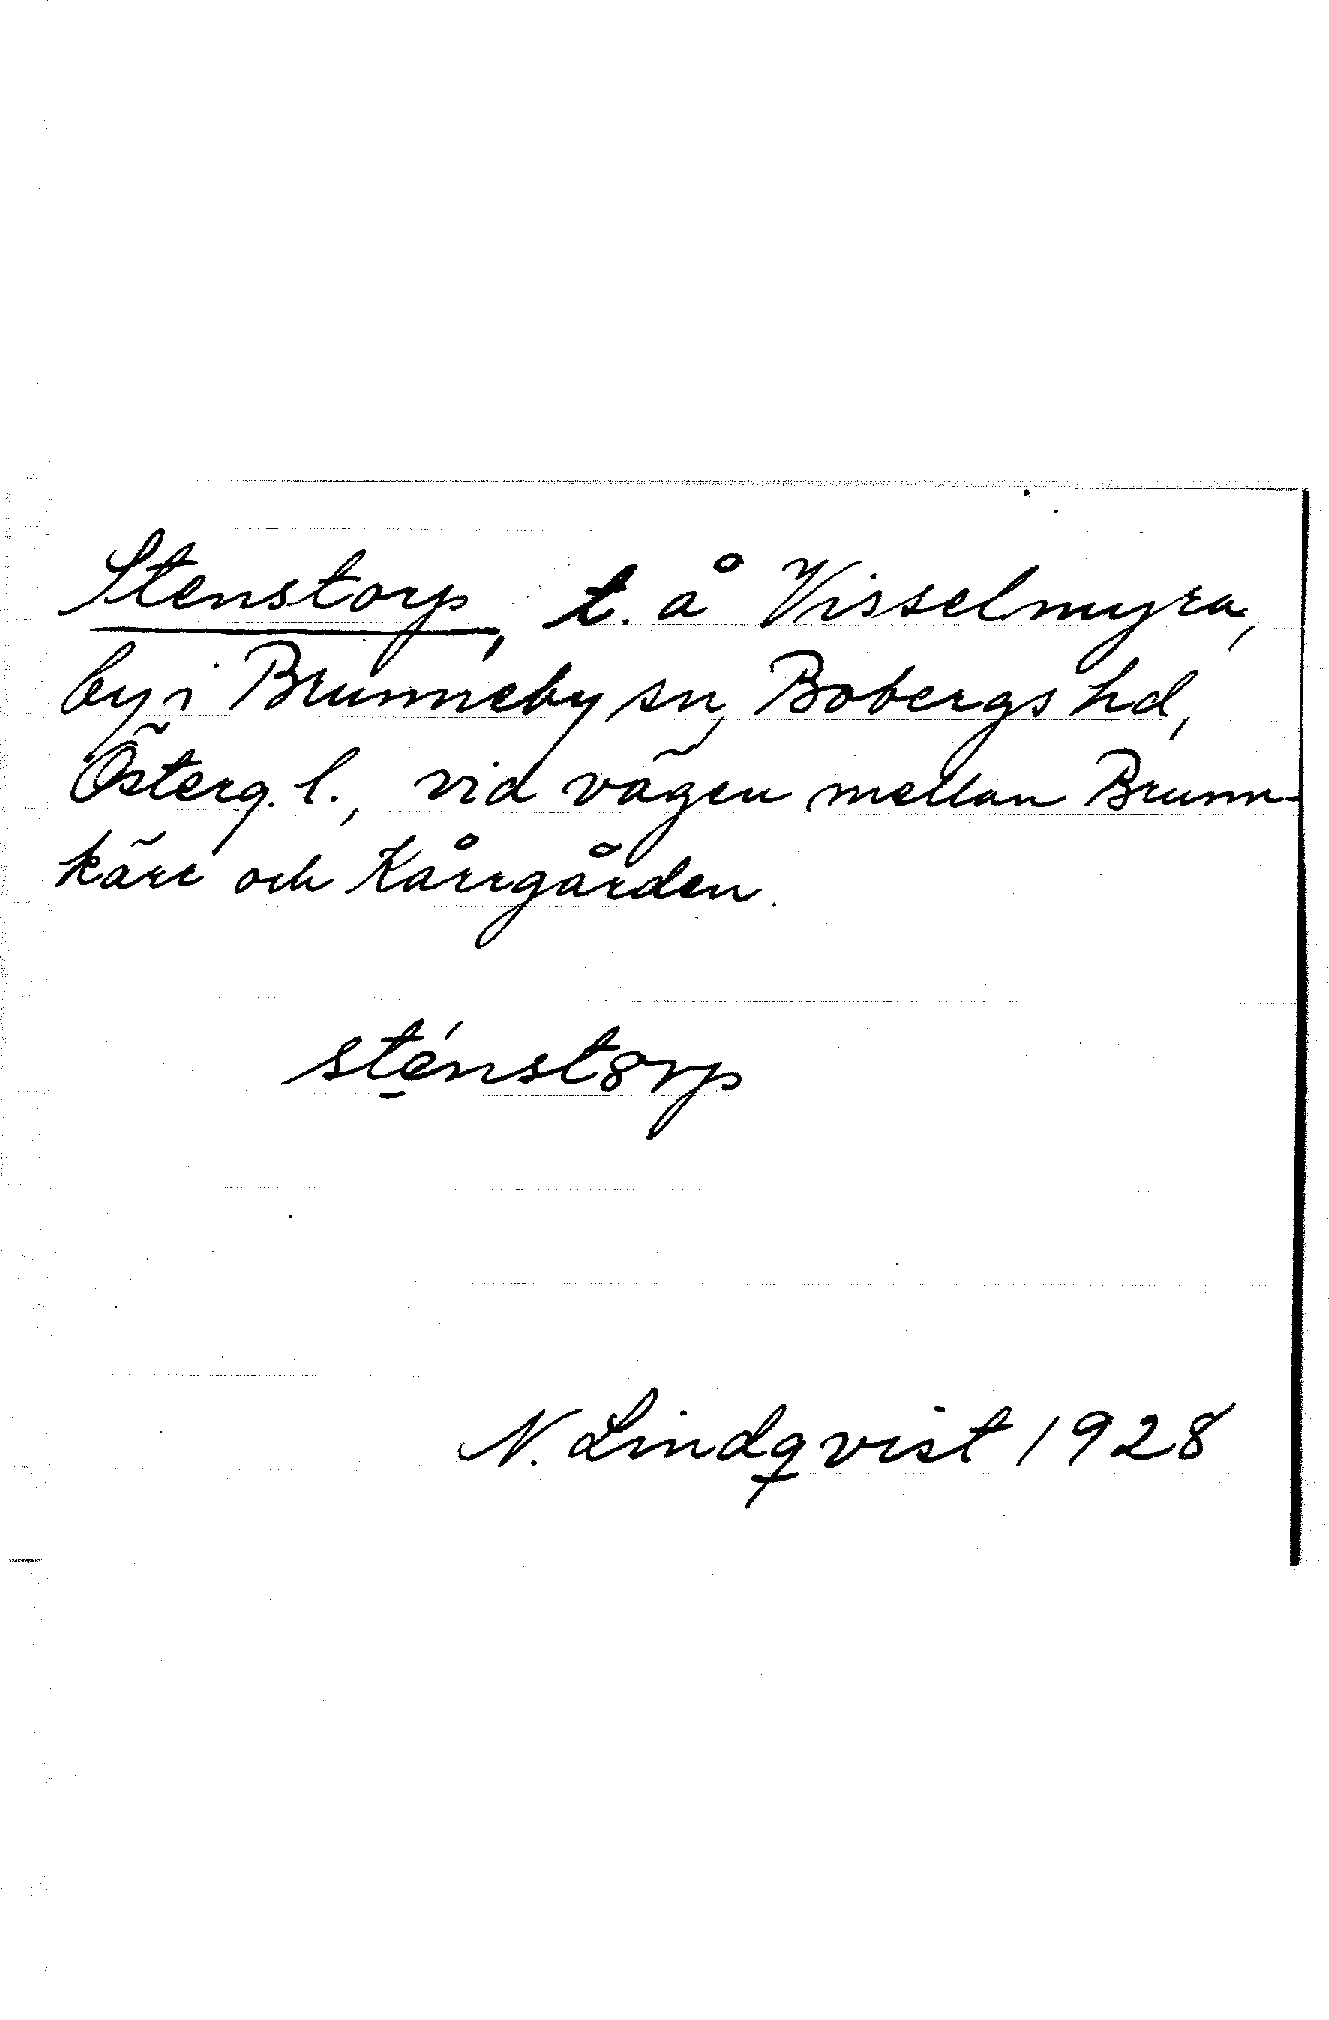 Stenstorp, t. å Visselmyra,
by i Brunneby sn, Bobergs hd,
Österg. l., vid vägen mellan Brunn-
kärr och Kårrgården.
sténstorp
N. Lindqvist 1928